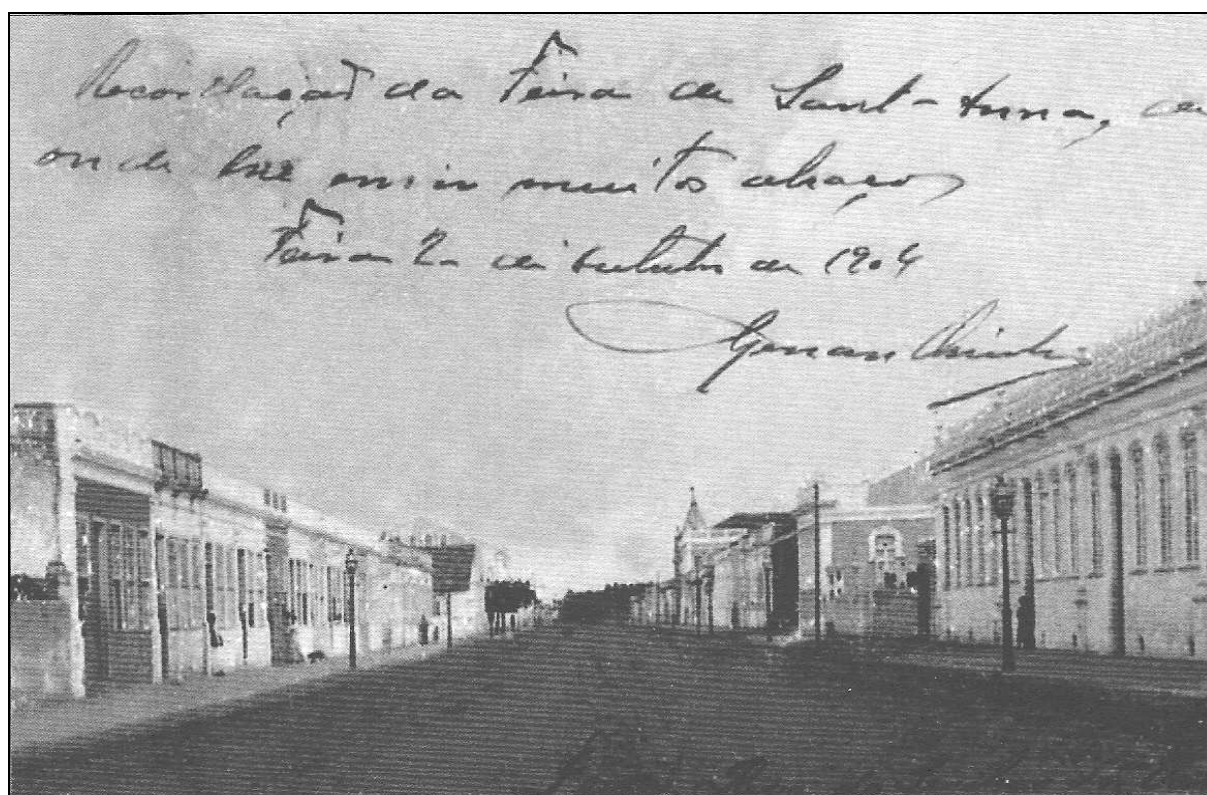 Recordação da Feira de Sant-Anna, de
onde lhe envio muitos abraços
Feira 2- de outubro de 1904